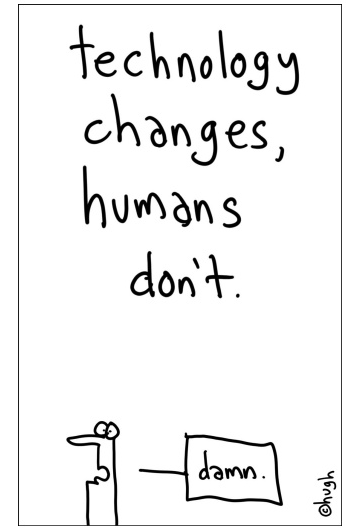 technology
changes,
humans
don't.
damn.
@hugh